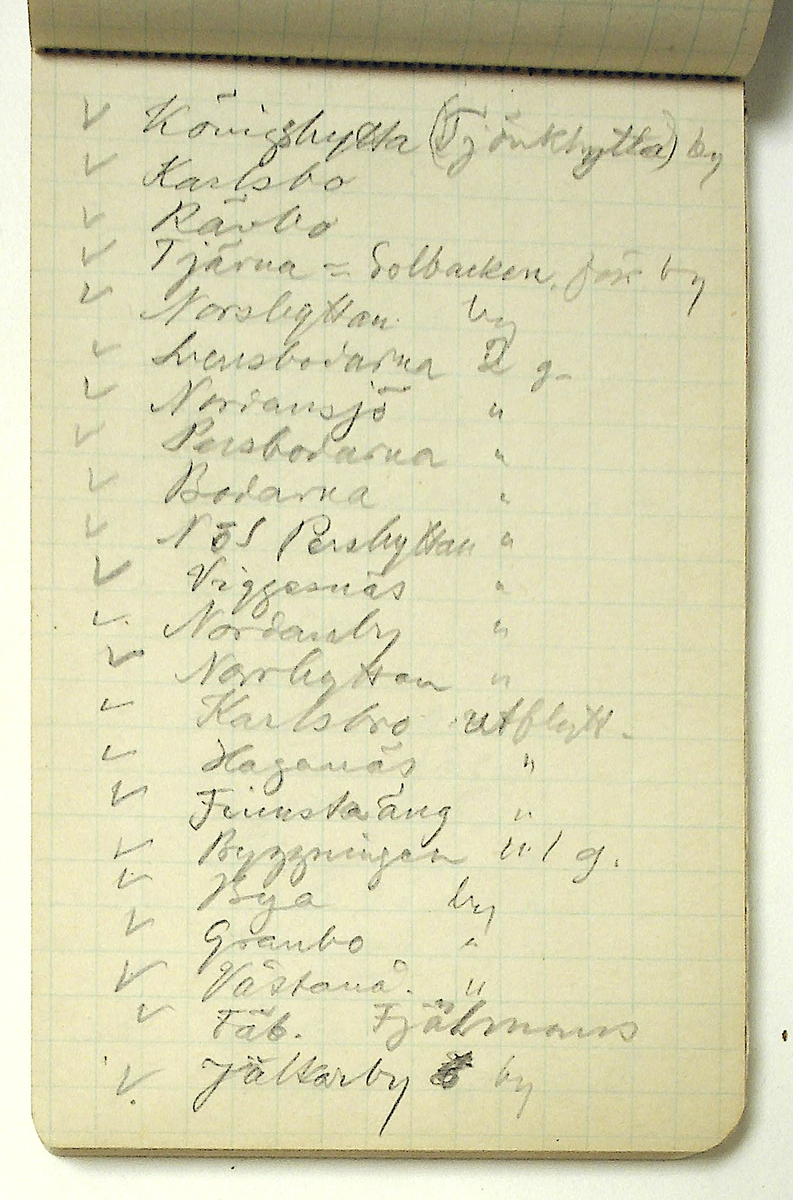 ✓ Königshytta (Tjönkhytta) by
✓ Karlsbo
✓ Rävbo
✓ Tjärna = Solbacken, by
✓ Norshyttan by
✓ Svensbodarna 2 g.
✓ Nordansjö "
✓ Persbodarna "
✓ Bodarna "
✓ N ö S Pershyttan "
✓ Viggesnäs "
✓ Nordanby "
✓ Norrhyttan "
✓ Karlsbro utflytt.
✓ Haganäs "
✓ Finnstaäng "
✓ Byggningen 1 g.
✓ Bya by
✓ Granbo "
✓ Västanå. "
✓ Fäb. Fjälmans
✓ Jältarby by